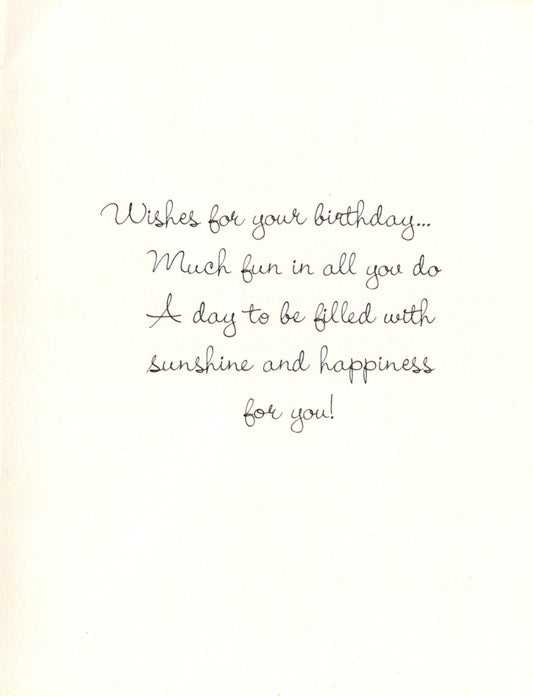 Wishes for your birthday...
Much fun in all you do
A day to be filled with
sunshine and happiness
for you!